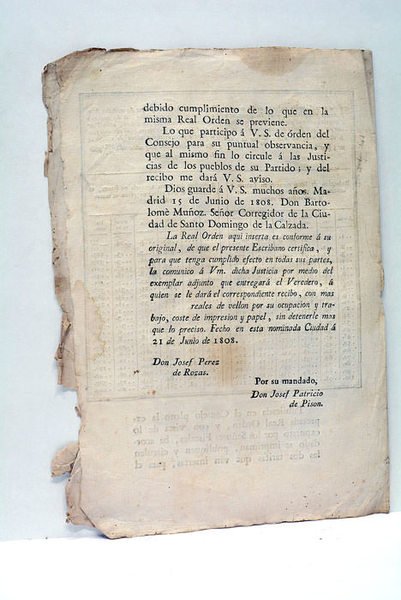 debido cumplimiento de lo que en la
misma Real Orden se previene.
Lo que participo á V. S. de órden del
Consejo para su puntual observancia, y
que al mismo fin lo circule á las Justi-
cias de los pueblos de su Partido; y del
recibo me dará V. S. aviso.
Dios guarde á V. S. muchos años. Ma-
drid 15 de Junio de 1808. Don Barto-
lomé Muñoz. Señor Corregidor de la Ciu-
dad de Santo Domingo de la Calzada.
La Real Orden aqui inserta es conforme á su
original, de que el presente Escribano certifica, y
para que tenga cumplido efecto en todas sus partes,
la comunico á Vm. dicha Justicia por medio del
exemplar adjunto que entregará el Veredero, á
quien se le dará el correspondiente recibo, con mas
reales de vellon por su ocupacion y tra-
bajo, coste de impresion y papel, sin detenerle mas
que lo preciso. Fecho en esta nominada Ciudad á
21 de Junio de 1808.
Don Josef Perez
de Rozas.
Por su mandado,
Don Josef Patricio
de Pison.